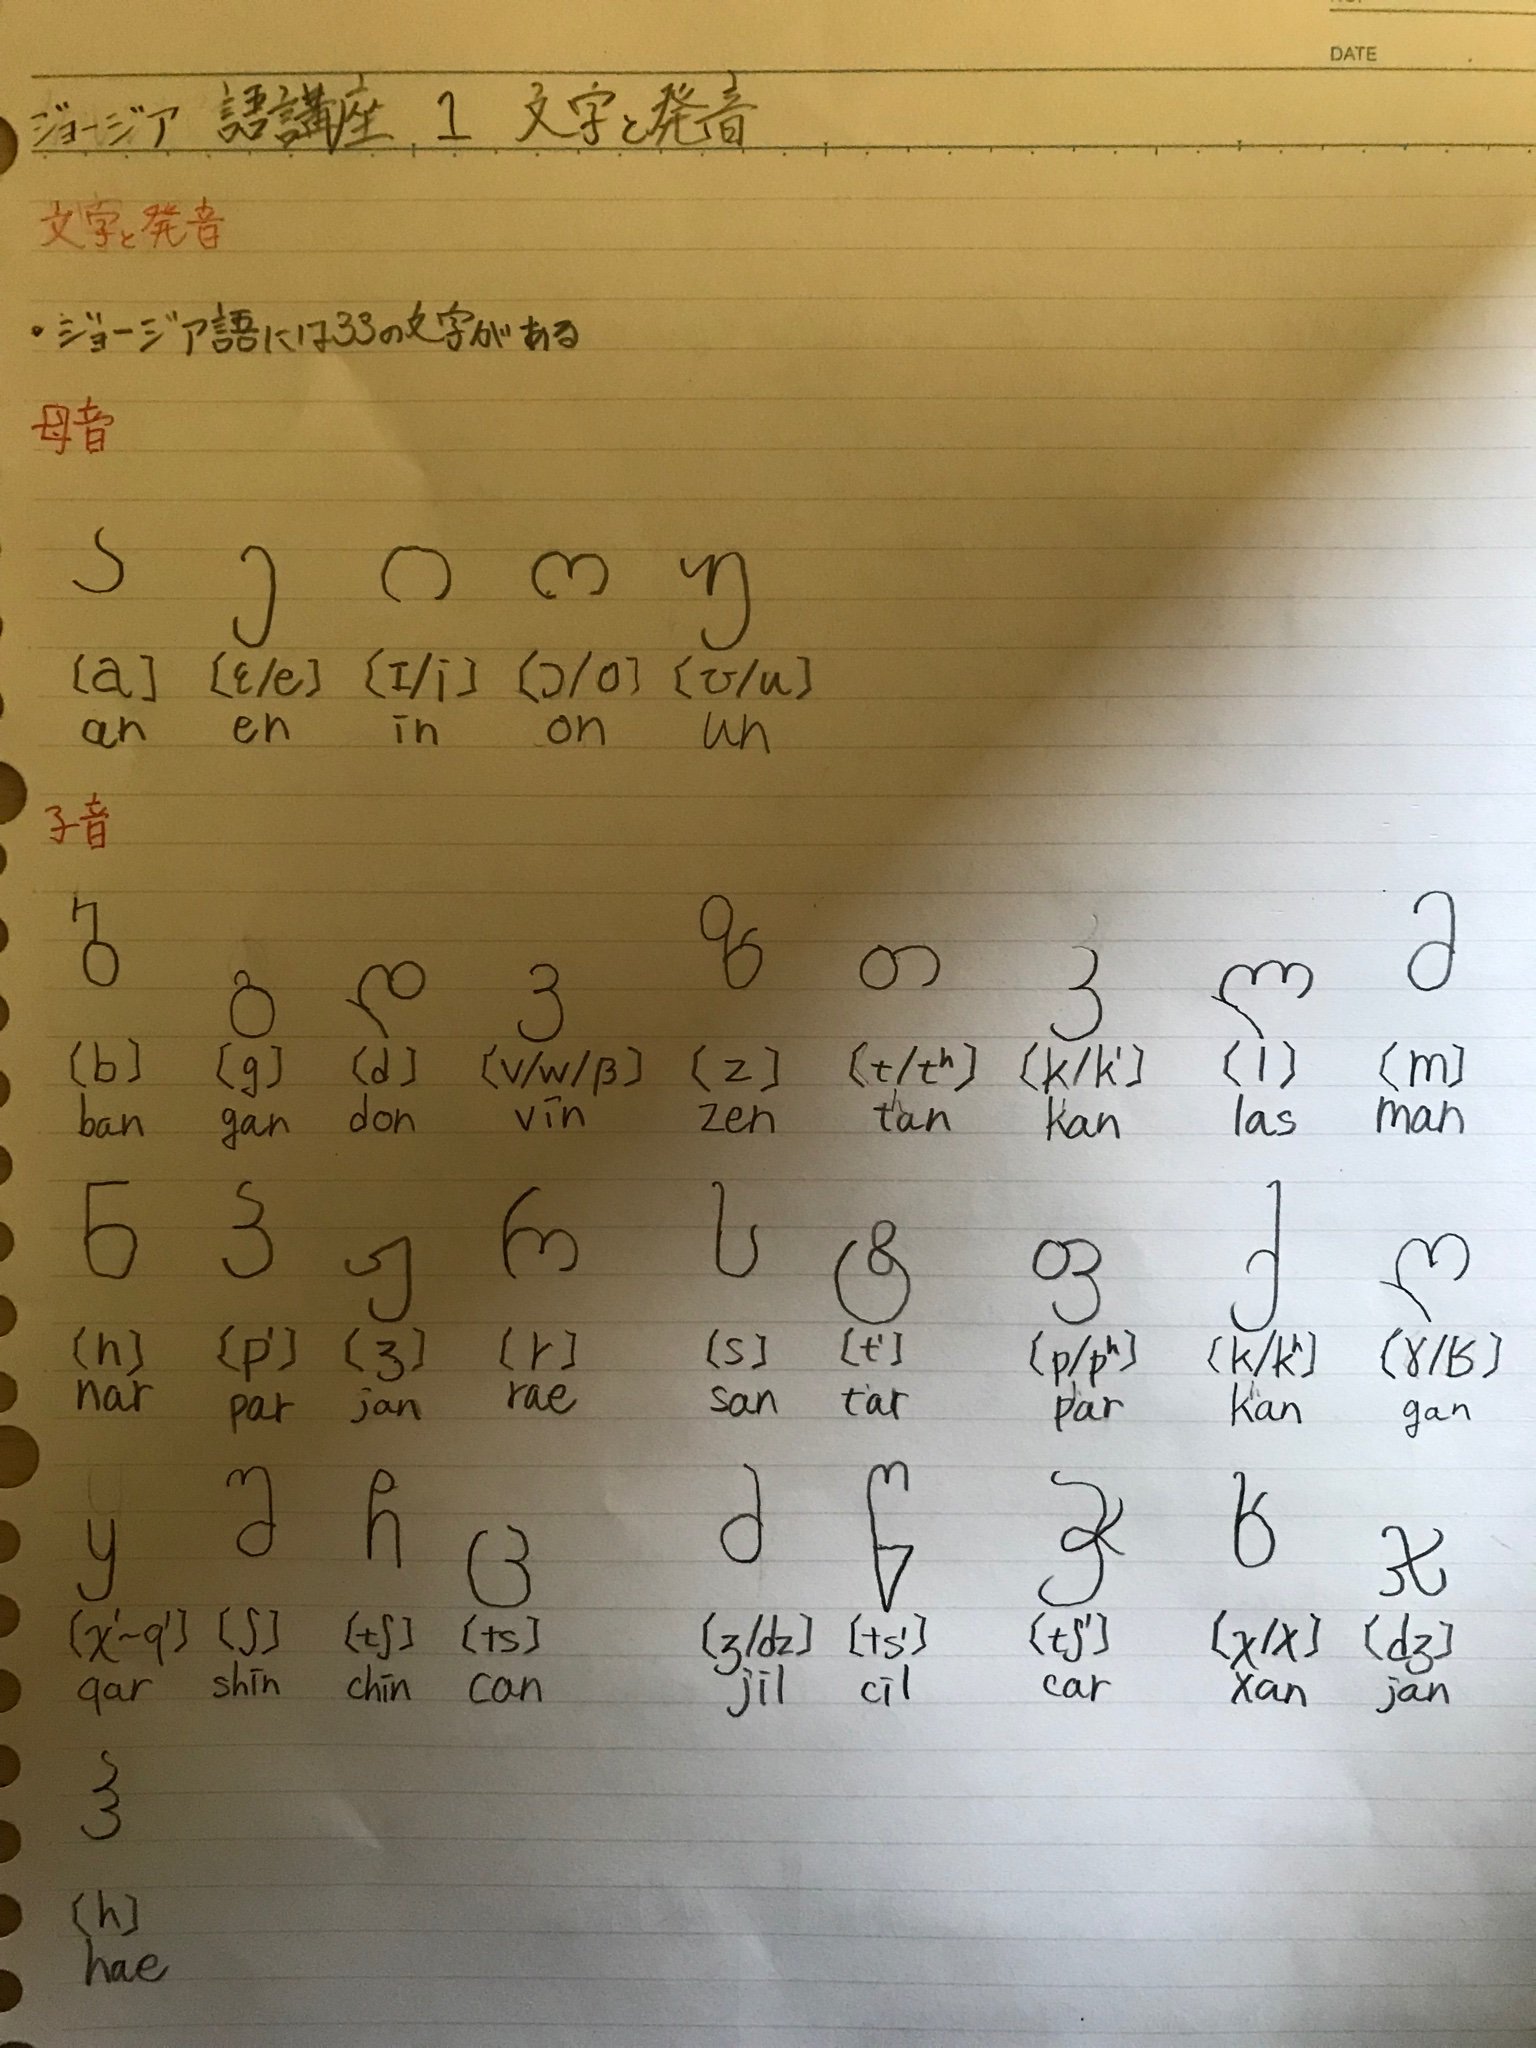 DATE
ジョージア 語講座 1 文字と発音
文字と発音
・ジョージア語には33の文字がある
母音
ა ე ი ო უ
[a] [ɛ/e] [I/i] [ɔ/o] [ʊ/u]
an en in on un
子音
ბ გ დ ვ ზ თ კ ლ მ
[b] [g] [d] [v/w/β] [z] [t/tʰ] [k/k'] [l] [m]
ban gan don vin zen tʰan kan las man
ნ პ ჟ რ ს ტ ფ ქ ღ
[n] [p'] [ʒ] [r] [s] [t'] [p/pʰ] [k/kʰ] [ɣ/ʁ]
nar par jan rae san tar pʰar kʰan gan
ყ შ ჩ ც ძ წ ჭ ხ ჯ
[χ'~q'] [ʃ] [tʃ] [ts] [ʒ/dz] [ts'] [tʃ'] [χ/x] [dʒ]
qar shin chin can jil cil car xan jan
ჰ
[h]
hae